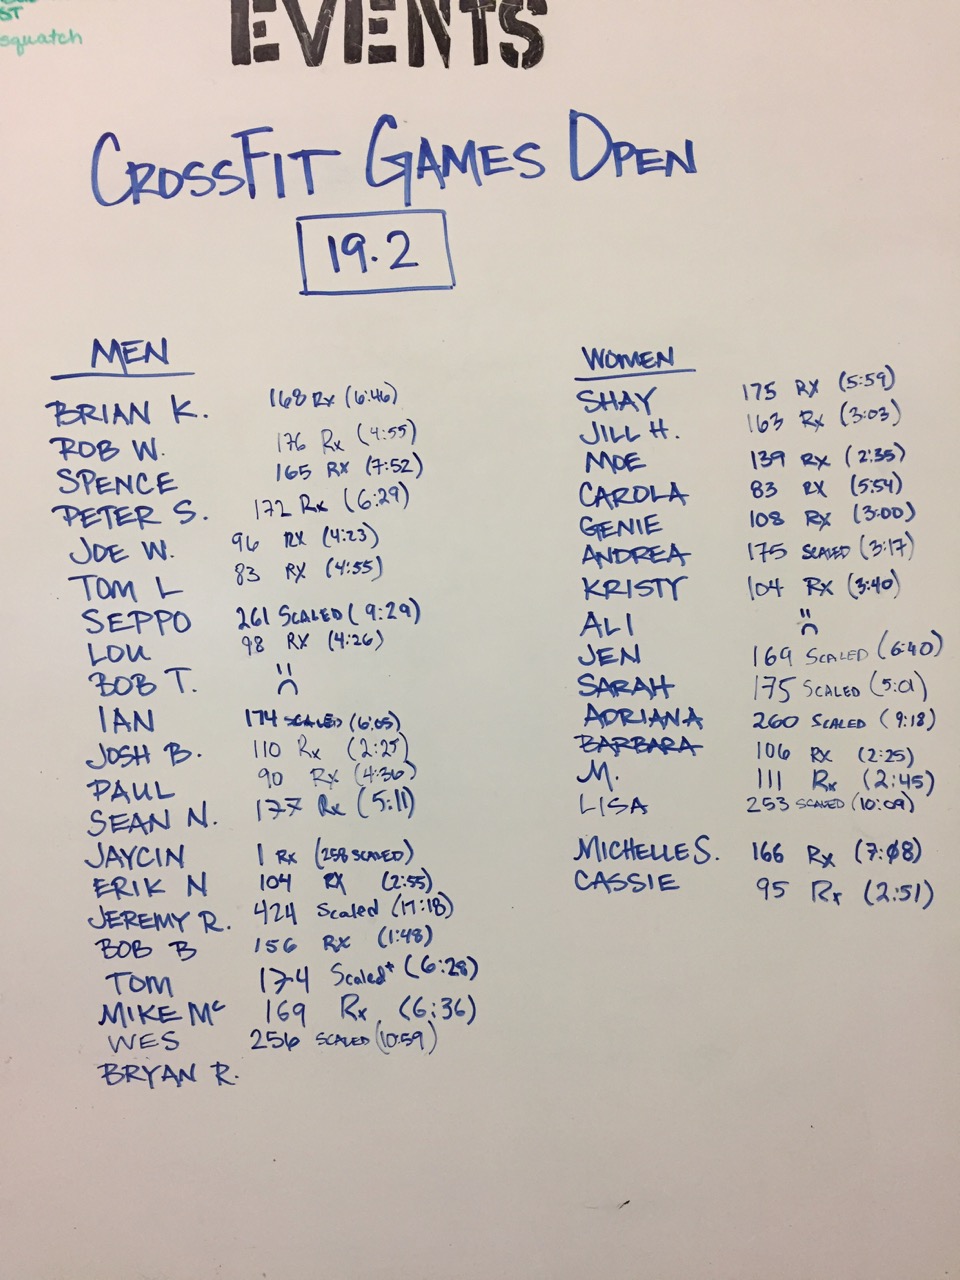 ST
squatch
EVENTS
CROSSFIT GAMES OPEN
19.2
MEN
BRIAN K. 168 Rx (6:46)
ROB W. 176 Rx (4:55)
SPENCE 165 RX (7:52)
PETER S. 172 Rx (6:29)
JOE W. 96 RX (4:23)
TOM L 83 RX (4:55)
SEPPO 261 SCALED (9:29)
LOU 98 RX (4:26)
BOB T.
IAN 174 SCALED (6:05)
JOSH B. 110 Rx (2:25)
PAUL 90 Rx (4:36)
SEAN N. 177 Rx (5:11)
JAYCIN 1 Rx (258 SCALED)
ERIK N 104 RX (2:55)
JEREMY R. 424 Scaled (17:18)
BOB B 156 RX (1:48)
TOM 174 Scaled* (6:28)
MIKE Mc 169 Rx (6:36)
WES 256 SCALED (10:59)
BRYAN R.
WOMEN
SHAY 175 RX (5:59)
JILL H. 163 Rx (3:03)
MOE 139 RX (2:35)
CAROLA 83 RX (5:54)
GENIE 108 Rx (3:00)
ANDREA 175 SCALED (3:17)
KRISTY 104 Rx (3:40)
ALI
JEN 169 SCALED (6:40)
SARAH 175 SCALED (5:01)
ADRIANA 260 SCALED (9:18)
BARBARA 106 RX (2:25)
M. 111 Rx (2:45)
LISA 253 SCALED (10:09)
MICHELLE S. 166 Rx (7:08)
CASSIE 95 Rx (2:51)